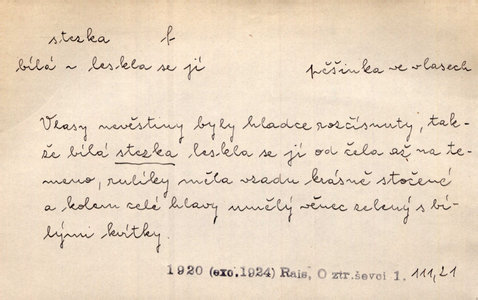 stezka f
bílá ~ leskla se jí pěšinka ve vlasech
Vlasy nevěstiny byly hladce rozčísnuty, tak-
že bílá stezka leskla se jí od čela až na te-
meno, rulíky měla vzadu krásně stočené
a kolem celé hlavy umělý věnec zelený s bí-
lými kvítky.
1920 (exc. 1924) Rais, O ztr. ševci 1. 111,21